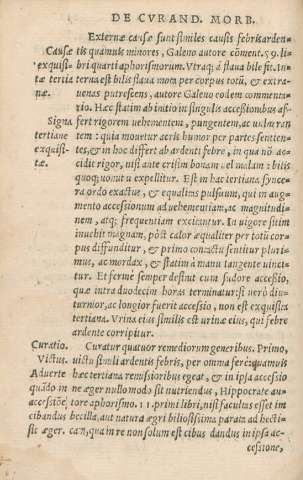 DE CVRAND. MORB.
Externæ causæ sunt similes causis febris arden-
Causæ tis quamuis minores, Galeno autore cōment. 59. li-
exquisi- bri quarti aphorismorum. Vtraq; à flaua bile fit. In-
tæ tertia terna est bilis flaua mota per corpus totū, & extra-
næ. uenas putrescens, autore Galeno eodem commenta-
rio. Hæc statim ab initio in singulis accessionibus af-
Signa fert rigorem uehementem, pungentem, ac uulneran
tertiane tem: quia mouetur acris humor per partes sentien-
exquisi- tes, & in hoc differt ab ardenti febre, in qua nō ac-
tæ. cidit rigor, nisi ante crisim bonam uel malam: bilis
quoq; uomitu expellitur. Est in hac tertiana syncē-
ra ordo exactus, & equalitas pulsuum, qui in aug-
mento accessionum ad uehementiam, ac magnitudi
nem, atq; frequentiam excitantur. In uigore sitim
inuehit magnam, pōst calor æqualiter per totū cor-
pus diffunditur, & primo contactu sentitur pluri-
mus, ac mordax, & statim à manu tangente uinci-
tur. Et fermē semper desinit cum sudore accessio,
quæ intra duodecim horas terminatur: si uerò diu-
turnior, ac longior fuerit accessio, non est exquisita
tertiana. Vrina eius similis est urinæ eius, qui febre
ardente corripitur.
Curatio. Curatur quatuor remediorum generibus. Primo,
Victus. uictu simili ardentis febris, per omnia ferè: quamuis
Aduerte hæc tertiana remissioribus egeat, & in ipsa accessio
quādo in ne æger nullo modo sit nutriendus, Hippocrate au-
accessiōe tore aphorismo. 11. primi libri, nisi facultas esset im
cibandus becilla, aut natura ægri biliosissima paratā ad hecti-
sit æger. cam, qua in re non solum est cibus dandus in ipsa ac-
cessione,